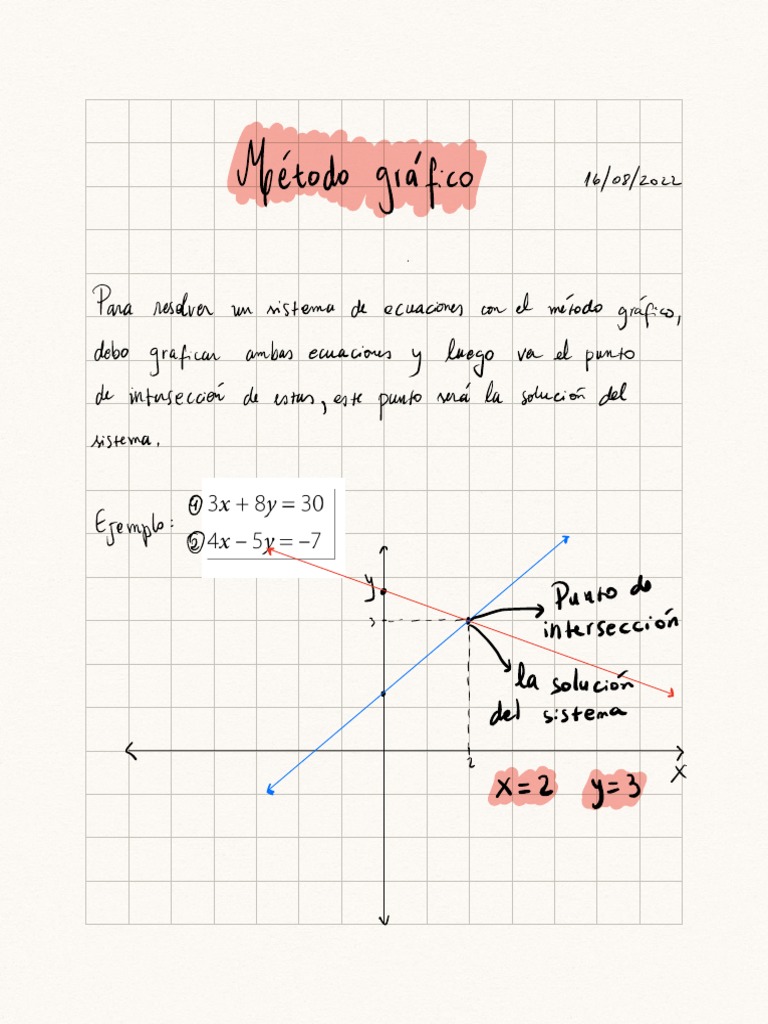 Método gráfico
16/08/2022
Para resolver un sistema de ecuaciones con el método gráfico,
debo graficar ambas ecuaciones y luego ver el punto
de intersección de estas, este punto será la solución del
sistema.
Ejemplo:
① 3x + 8y = 30
② 4x – 5y = –7
y
Punto de
intersección
3
la solución
del sistema
2
x
x = 2 y = 3